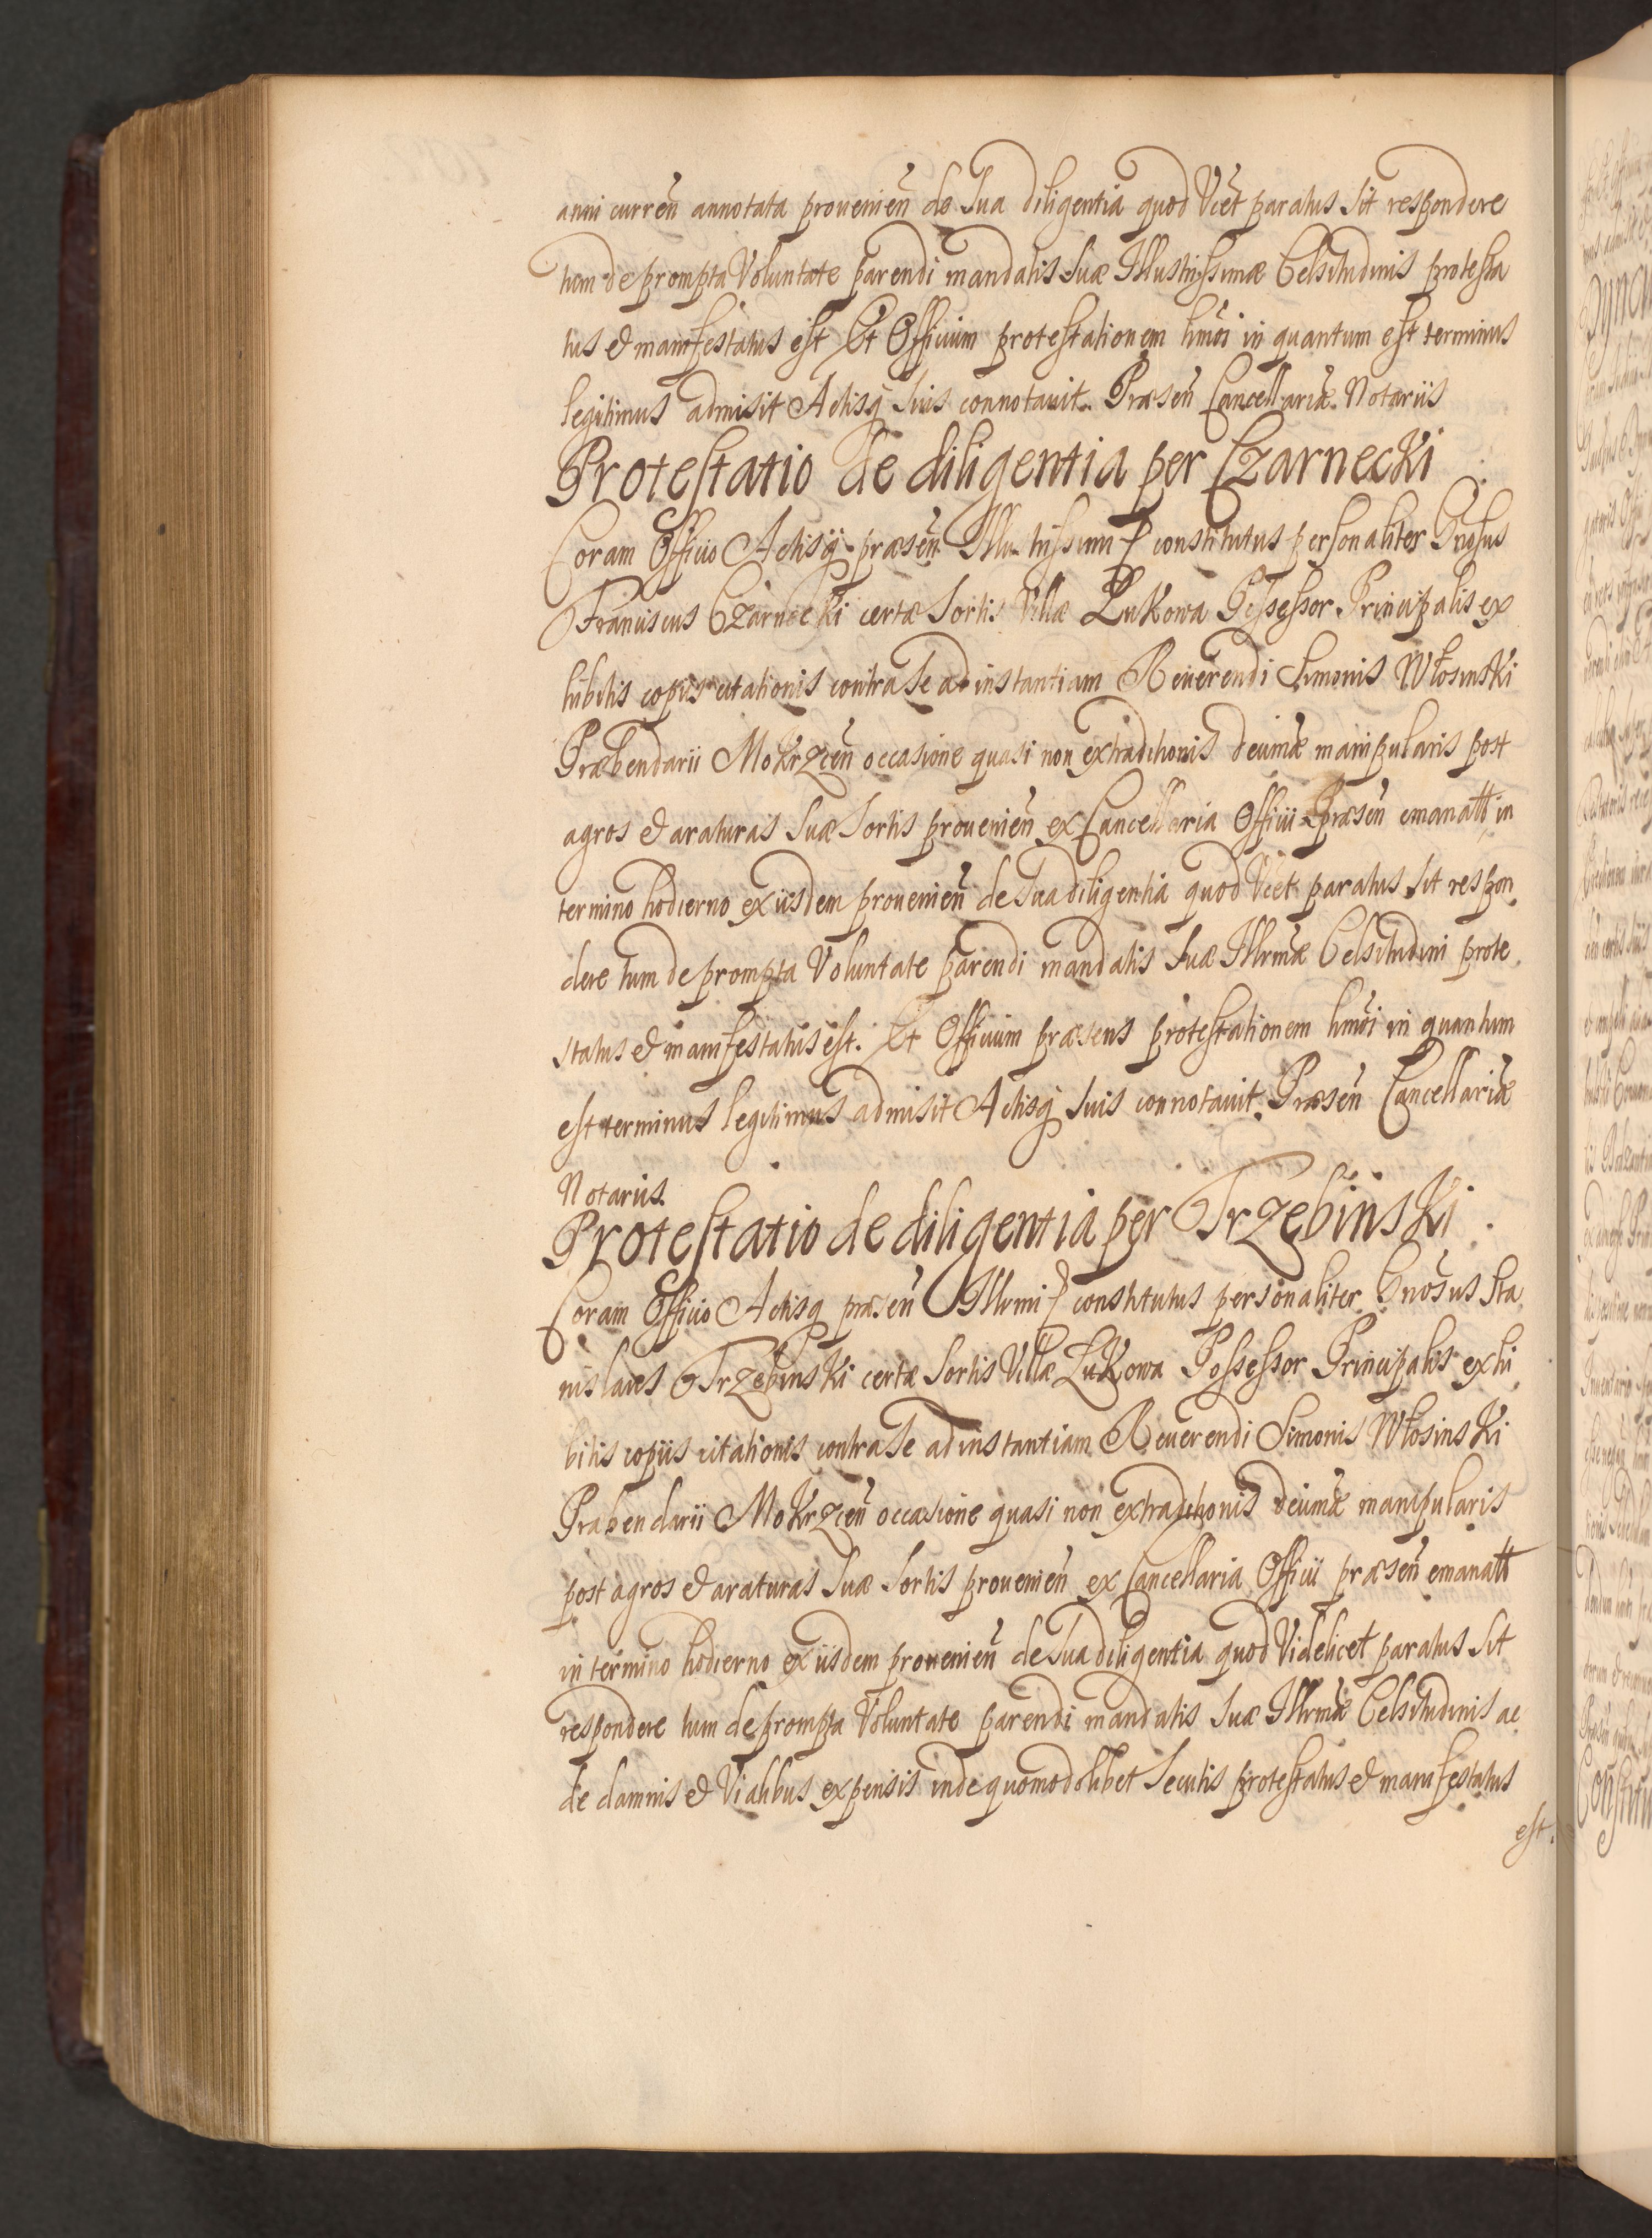 anni curren̄ annotata prouenien̄ de Sua diligentia quod Vcēt paratus sit respondere
tum de prompta Voluntate parendi mandatis Suæ Illustrissimæ Celsitudinis protesta
tus & manifestatus est Et Officium protestationem hmōi in quantum est terminus
legitimus admisit Actisq̄ suis connotauit. Præsen̄ Cancellariæ Notariis
Protestatio de diligentia per Czarnecki
Coram Officio Actisq̄ præsen̄ Illustrissimi constitutus personaliter Gnosus
Franciscus Czarnecki certæ Sortis Villæ Łukowa Possessor Principalis ex
hibitis copiis citationis contra Se ad instantiam Reuerendi Simonis Włosinski
Præbendarii Mokrzcen̄ occasione quasi non extraditionis decimæ manipularis post
agros & araturas Suæ Sortis prouenien̄ ex Cancellaria Officii Præsen̄ emanatt in
termino hodierno ex iisdem prouenien̄ de Sua diligentia quod Vcet paratus sit respon
dere tum de prompta Voluntate parendi mandatis Suæ Illrmæ Celsitudini prote
status & manifestatus est. Et Officium præsens protestationem hmōi in quantum
est terminus legitimus admisit Actisq̄ Suis connotauit. Præsen̄ Cancellariæ
Notariis.
Protestatio de diligentia per Trzebinski
Coram Officio Actisq præsen̄ Illrmi constitutus personaliter Gnōsus Sta
nislaus Trzebinski certæ Sortis Villæ Łukowa Possessor Principalis exhi
bitis copiis citationis contra Se ad instantiam Reuerendi Simonis Włosinski
Præbendarii Mokrzcen̄ occasione quasi non extraditionis decimæ manipularis
post agros & araturas Suæ Sortis prouenien̄ ex Cancellaria Officii præsen̄ emanatt
in termino hodierno ex iisdem prouenien̄ de Sua diligentia quod Videlicet paratus sit
respondere tum de prompta Voluntate parendi mandatis Suæ Illrmæ Celsitudinis ac
de damnis & Vialibus expensis inde quomodolibet Secutis protestatus & manifestatus
est.